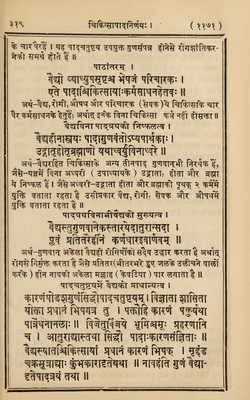 ३१९ चिकित्सापादनिर्णयः। (११७१)
के चार पैर हैं । यह पादचतुष्टय उपयुक्त गुणसंपन्न होनेसे रोगशांतिकर-
नेको समर्थ होते हैं ॥
पाठांतरम् ।
वैद्यो व्याध्युपसृष्टश्च भेषजं परिचारकः ।
एते पादाश्चिकित्सायाः कर्मसाधनहेतवः ॥
अर्थ-वैद्य, रोगी, औषध और परिचारक (सेवक) ये चिकित्साके चार
पैर कर्मसाधनके हेतु हैं; अर्थात् इनके विना चिकित्सा कर्म नहीं होसक्ता ॥
वैद्यविना पादत्रयको निष्फलत्व ।
वैद्यहीनास्त्रयः पादा गुणवंतोऽप्यपार्थकाः ।
उद्गातृहोतृब्रह्माणो यथाध्वर्युविनाध्वरे ॥
अर्थ-वैद्यरहित चिकित्साके अन्य तीनपाद गुणवान्‌भी निरर्थक हैं,
जैसे-यज्ञमें विना अध्वर्यो (उपाध्यायके) उद्गाता; होता और ब्रह्मा
ये निष्फल हैं । जैसे अध्वर्यो-उद्गाता होता और ब्रह्माको पृथक् २ कर्ममें
युक्ति वताता रहता है उसीप्रकार वैद्य, रोगी, सेवक और औषधमें
युक्ति वताता रहता है ॥
पादत्रयविनाभी वैद्यको मुख्यत्व ।
वैद्यस्तु गुणवानेकस्तारयेदातुरान्सदा ।
प्लवं प्रतितरैर्हीनं कर्णधारइवार्णवम् ॥
अर्थ-गुणवान् अकेला वैद्यही रोगियोंको सदैव उद्धार करता है अर्थात्
रोगसे निर्मुक्त करता है जैसे पतितर
करके ) हीन नावको अकेला मल्लाह (केवटिया) पार लगाता है ॥
पादचतुष्टयमें वैद्यको प्राधान्यत्व ।
कारणंषोडशगुणंसिद्धौपादचतुष्टयम् । विज्ञाता शासिता
योक्ता प्रधानं भिषगत्र तु । पक्तौहि कारणं पक्तुर्यथा
पात्रेंधनानलाः ॥ विजेतुर्विजये भूमिश्चमूः प्रहरणानि
च । आतुराद्यास्तथा सिद्धौ पादाःकारणसंज्ञिताः ॥
वैद्यस्यातश्चिकित्सायां प्रधानं कारणं भिषक् । मृद्दंड
चक्रसूत्राद्याः कुंभकारादृतेयथा ॥ नावहंति गुणं वैद्या-
दृतेपादत्रयं तथा ॥